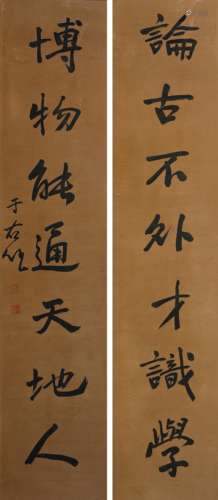 論古不外才識學
博物能通天地人
于右任